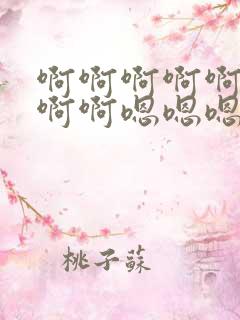 啊啊啊啊啊
啊啊嗯嗯嗯
桃子蘇